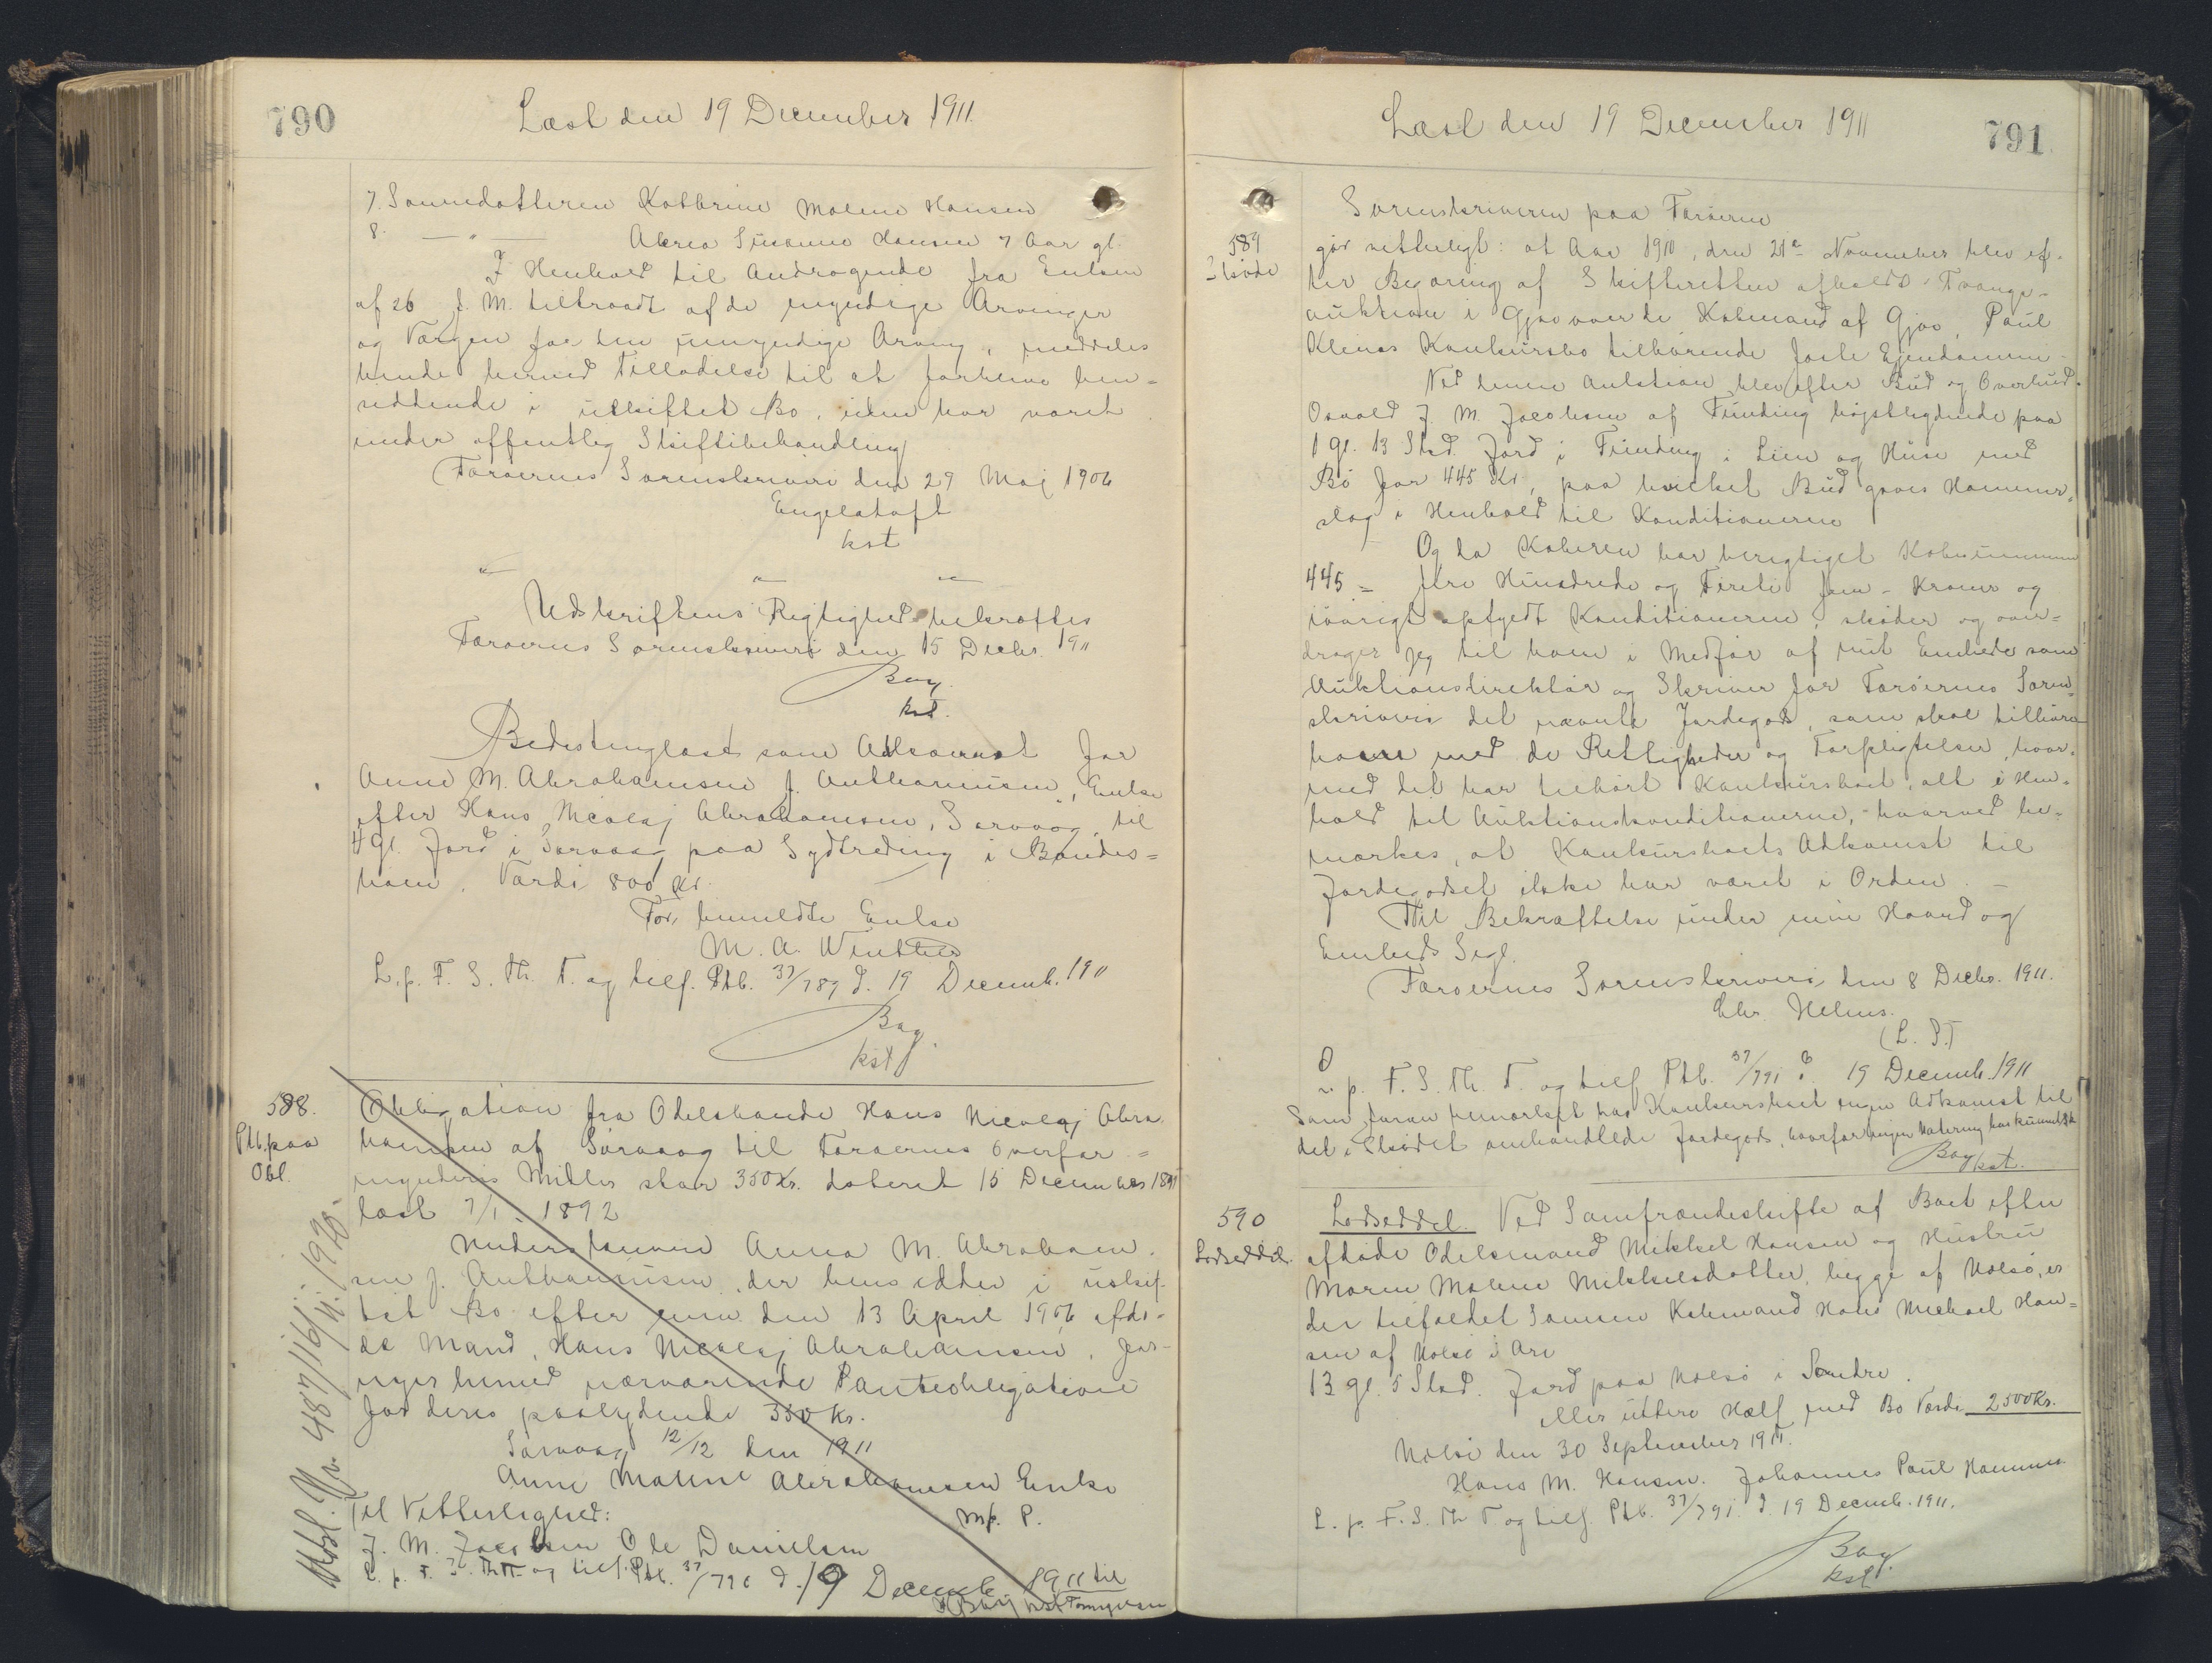 790
Læst den 19 December 1911.
7. Sønnedatteren Kathrine Malene Hansen
8. — " — Alexia Susanne Hansen 7 Aar gl.
I Henhold til Andragende fra Enken
af 26 d. M. tiltraadt af de myndige Arvinger
og Værgen for den umyndige Arving, meddeles
hende herved Tilladelse til at forblive hen=
siddende i uskiftet Bo, uden har været
under offentlig Skiftebehandling
Færøernes Sorenskriveri den 29 Maj 1906
Engelstoft
kst
" " "
Udskriftens Rigtighed bekræftes
Færøernes Sorenskriveri den 15 Decbr. 1911
Bay
kst.
Bedes tinglæst som Adkomst for
Anne M. Abrahamsen f. Anthoniusen, Enke
efter Hans Nicolaj Abrahamsen, Sørvaag, til
4 Gl. Jord i Sørvaag paa Sydtreding i Bondes=
ham. Værdi 800 Kr.
For bemeldte Enke
M. A. Winther
L. p. F. S. Th. T. og tilf. Ptb. 37/789 d. 19 Decemb. 1911
Bay
kst
588.
Ptb. paa
Obl.
Obligation fra Odelsbonde Hans Nicolaj Abra
hamsen af Sørvaag til Færøernes Overfor=
mynderis Midler stor 350 Kr. dateret 15 December 1891
læst 7/1 - 1892
Undertegnede Anna M. Abraham=
sen f. Anthoniusen, der hensidder i uskif=
tet Bo efter min den 13 April 1906 afdø=
de Mand, Hans Nicolaj Abrahamsen, for=
nyer herved nærværende Panteobligation
for deres paalydende 350 Kr.
Sørvaag 12/12 den 1911
Anne Malene Abrahamsen Enke
m. p. P.
Til Vitterlighed:
J. M. Jacobsen Ole Danielsen
L. p. F. S. Th. T. og tilf. Ptb. 37/790 d. 19 Decemb. 1911 til
Bay kst Fornyelse
Udsl. No 487/16/11. 1920.
Læst den 19 December 1911
791
589
Skøde
Sorenskriveren paa Færøerne
gør vitterligt: at Aar 1910, den 21de November blev ef=
ter Begæring af Skifteretten afholdt Tvangs=
auktion i Gjov over de Købmand af Gjov, Paul
Kleins Konkursbo tilhørende faste Ejendomme
Ved denne Auktion blev efter Bud og Overbud
Osvald J. M. Jacobsen af Funding højstbydende paa
1 gl. 13 Skd. Jord i Funding i Lien og Huse med
Bø for 445 Kr., paa hvilket Bud gaves Hammer=
slag i Henhold til Konditionerne
Og da Køberen har berigtiget Købesummen
445 = fire Hundrede og Fireti fem - Kroner og
iøvrigt opfyldt Konditionerne, skøder og over=
drager jeg til ham i Medfør af mit Embede som
Auktionsdirektør og Skriver for Færøernes Soren=
skriveri det nævnte Jordegods, som skal tilhøre
ham med de Rettigheder og Forpligtelser, hvor=
med det har tilhørt Konkursboet, alt i Hen=
hold til Auktionskonditionerne, - hvorved be=
mærkes, at Konkursboets Adkomst til
Jordegodset ikke har været i Orden. -
Til Bekræftelse under min Haand og
Embeds Segl.
Færøernes Sorenskriveri, den 8 Decbr. 1911.
Chr. Helms.
(L. S.)
L. p. F. S. Th. T. og tilf Ptb. 37/791 d. 19 Decemb. 1911
Som foran bemærket har Konkursboet ingen Adkomst til
det i Skødet omhandlede Jordegods, hvorfor ingen Notering har kunnet ske
Bay kst.
590
Lodseddel.
Lodseddel. Ved Samfrændeskifte af Boet efter
afdøde Odelsmand Mikkel Hansen og Hustru
Maren Malene Mikkelsdatter, begge af Nolsø, er
der tilfaldet Sønnen Købmand Hans Michael Han=
sen af Nolsø i Arv
13 gl. 5 Skd. Jord paa Nolsø i Søndre
eller uttere Half med Bø Værdi 2500 Kr.
Nolsø den 30 September 1911.
Hans M. Hansen. Johannes Paul Hammer
L. p. F. S. Th T og tilf. Ptb. 37/791. d. 19 Decemb. 1911.
Bay
kst